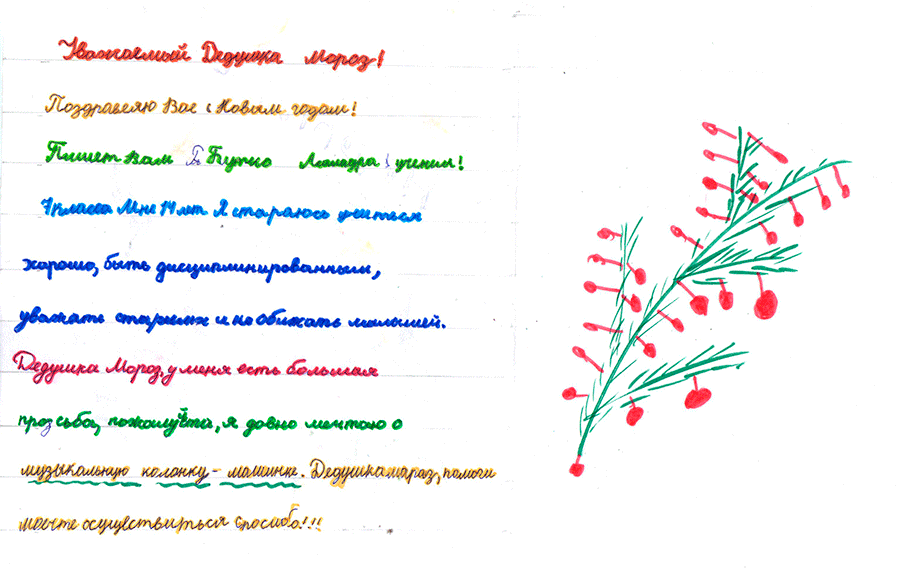 Уважаемый Дедушка Мороз!
Поздравляю Вас с Новым годом!
Пишет Вам Бутко ученик!
7 класса Мне 14 лет. Я стараюсь учиться
хорошо, быть дисциплинированным,
уважать старших и не обижать малышей.
Дедушка Мороз, у меня есть большая
прозсьба, пожалуйста, я давно мечтаю о
музыкальную колонку - машинке. Дедушкамараз, помоги
мечте осуществиться спосибо!!!